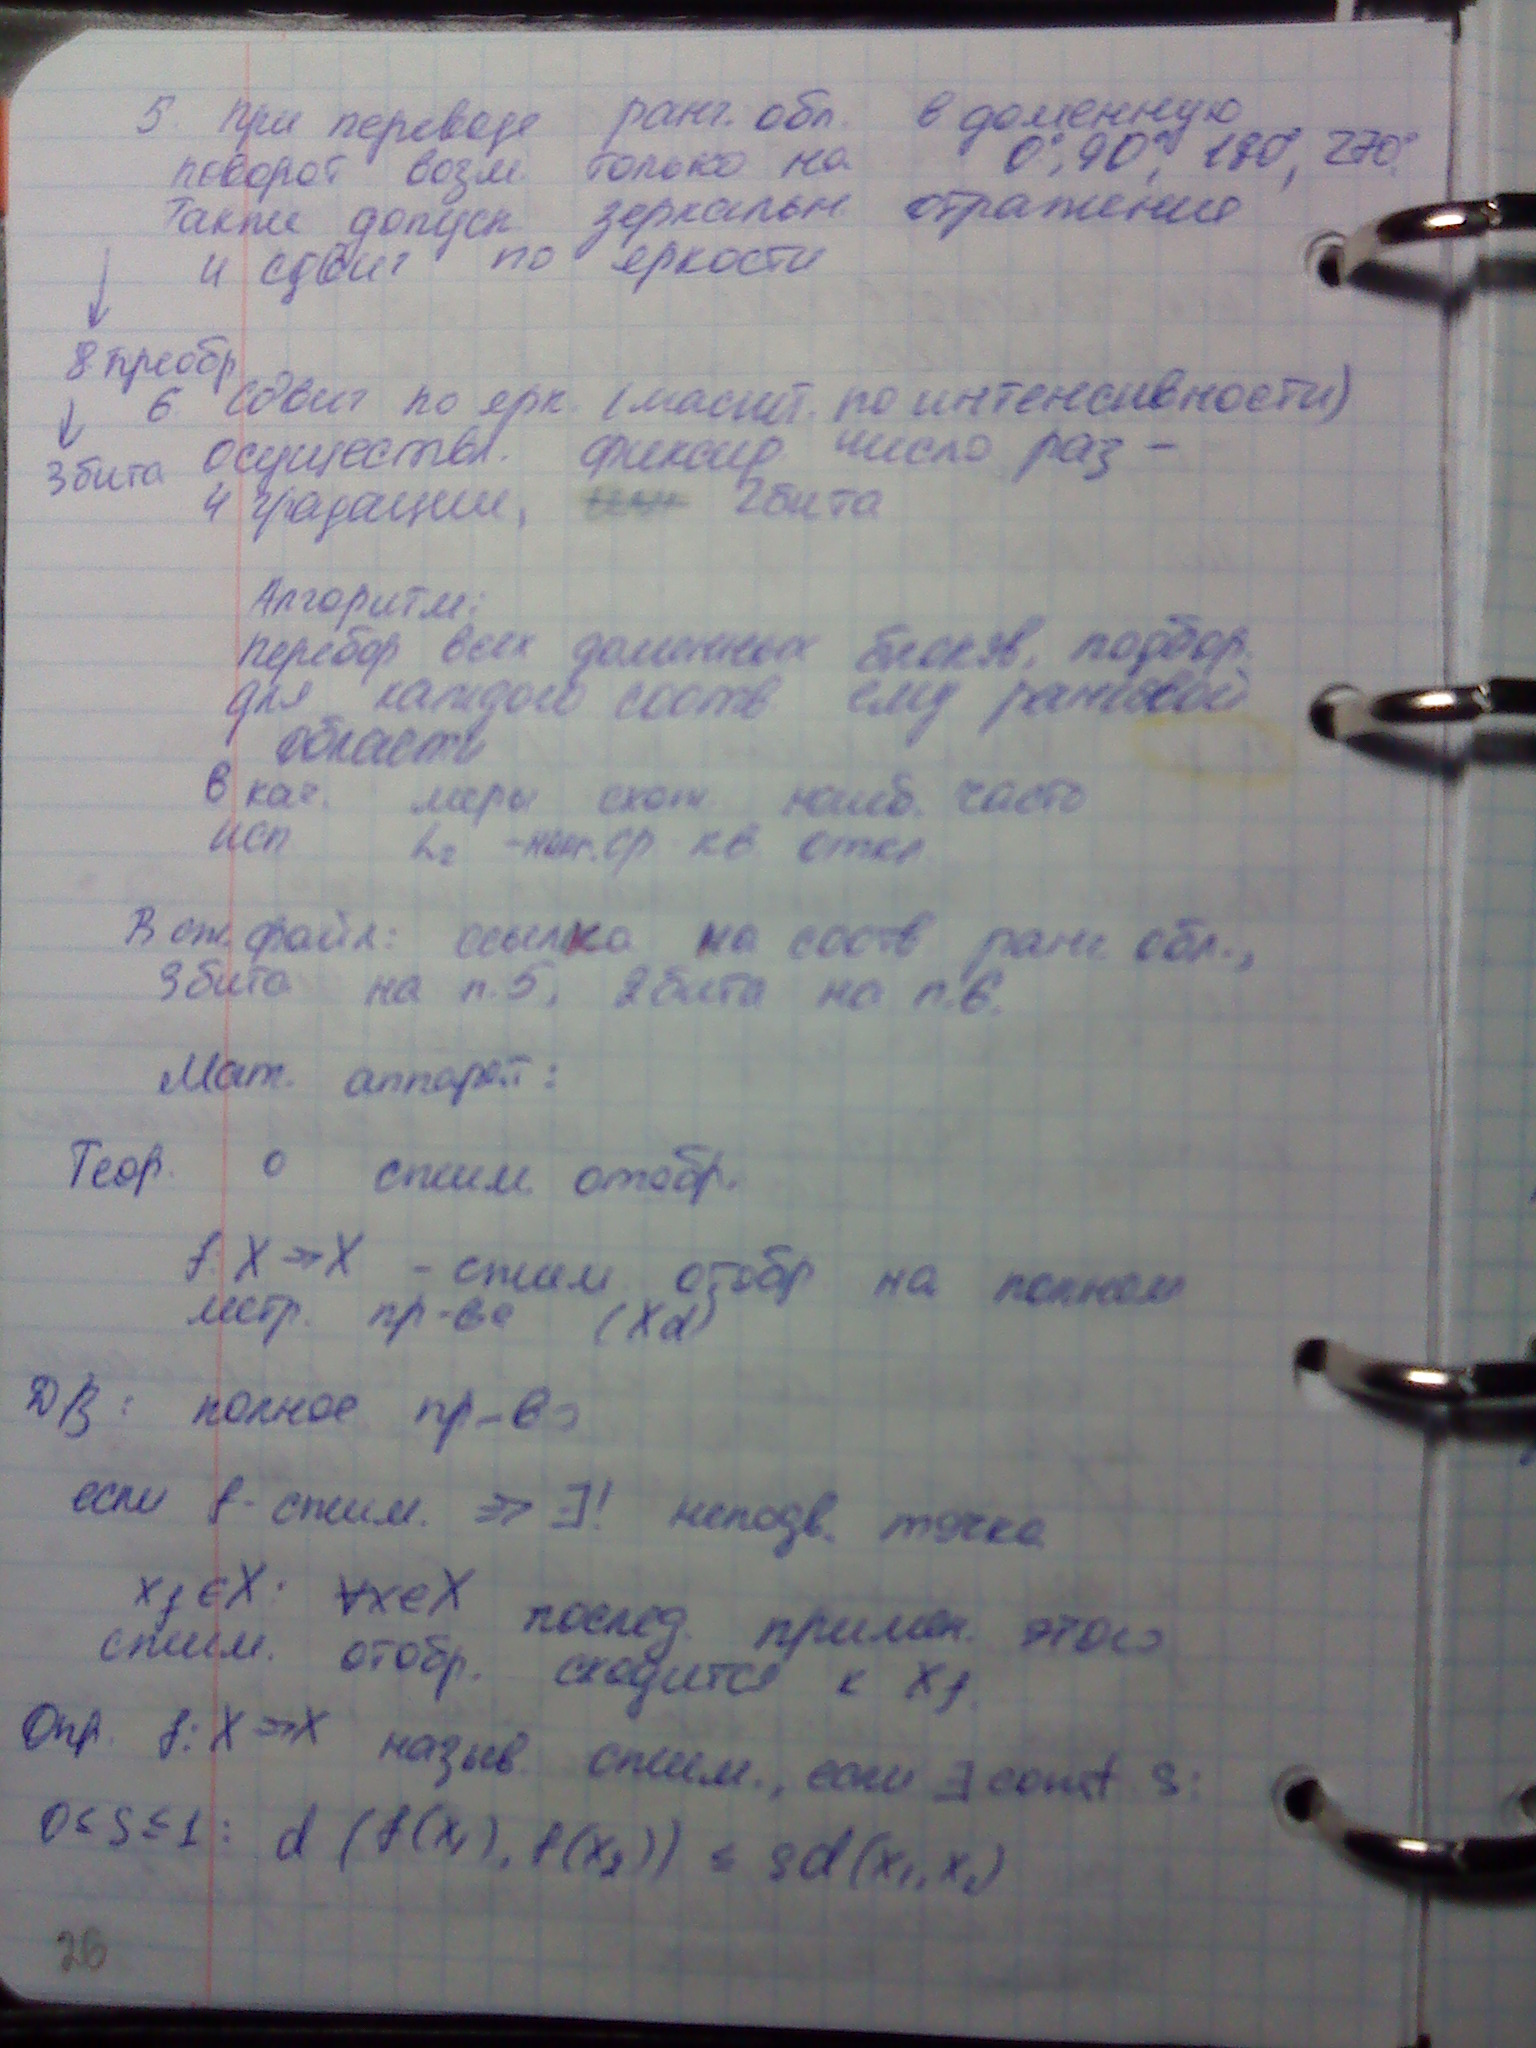 5. При переводе ранг. обл. в доменную
поворот возм. только на 0°, 90°, 180°, 270°.
Также допуск зеркальн. отражение
и сдвиг по яркости
8 преобр
6 Сдвиг по ярк. (масшт. по интенсивности)
3 бита осуществл. фиксир число раз –
4 градации, 2 бита
Алгоритм:
перебор всех доменных блоков, подбор.
для каждого соотв ему ранговой
область
В кач. меры схож. наиб. часто
исп L₂ ср кв откл.
В сж. файл: ссылка на соотв ранг обл.,
3 бита на п.5, 2 бита на п.6.
Мат. аппарат:
Теор. о сжим. отобр.
f: X → X – сжим отобр на полном
метр. пр-ве (X d)
ДЗ: полное пр-во
если f - сжим. ⇒ ∃! неподв. точка
x_f ∈ X: ∀x∈X послед. примен. этого
сжим. отобр. сходится к x_f.
Опр. f: X → X назыв. сжим., если ∃ const s:
0 ≤ s ≤ 1: d (f(x₁), f(x₂)) ≤ s d(x₁, x₂)
26